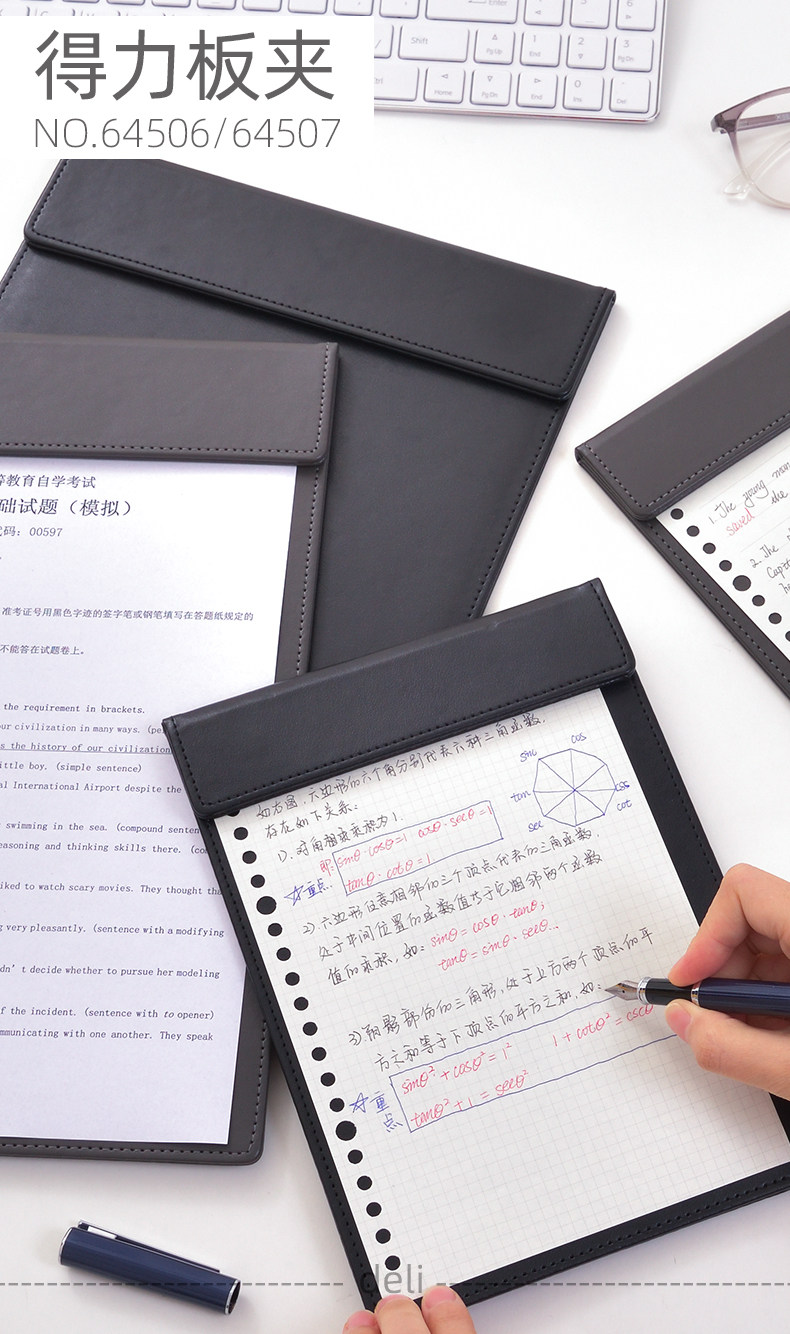 得力板夹
NO.64506/64507
Enter
Shift
PgUp
End
PgDn
Home
PgDn
End
Ins
Del
等教育自学考试
础试题（模拟）
代码：00597
准考证号用黑色字迹的签字笔或钢笔填写在答题纸规定的
不能答在试题卷上。
the requirement in brackets.
our civilization in many ways.
s the history of our civilization
ittle boy. (simple sentence)
al International Airport despite the
swimming in the sea. (compound senten
easoning and thinking skills there. (co
iked to watch scary movies. They thought th
g very pleasantly. (sentence with a modifying
dn't decide whether to pursue her modeling
f the incident. (sentence with to opener)
mmunicating with one another. They speak
1. The young man
saved the
2. The
如右图，六边形的六个角分别代表六种三角函数，
存在如下关系：
1）对角相乘乘积为1.
即：sinθ·cscθ=1 cosθ·secθ=1
☆重点. tanθ·cotθ=1
sin cos
tan csc
sec cot
2）六边形任意相邻的三个顶点代表的三角函数，
处于中间位置的函数值等于它相邻两个函数
值的乘积，如：sinθ=cosθ·tanθ；
tanθ=sinθ·secθ...
3）阴影部份的三角形，处于上方两个顶点的平
方之和等于下顶点的平方之和，如：
☆重点
sinθ²+cosθ²=1² 1+cotθ²=cscθ
tanθ²+1=secθ²
deli